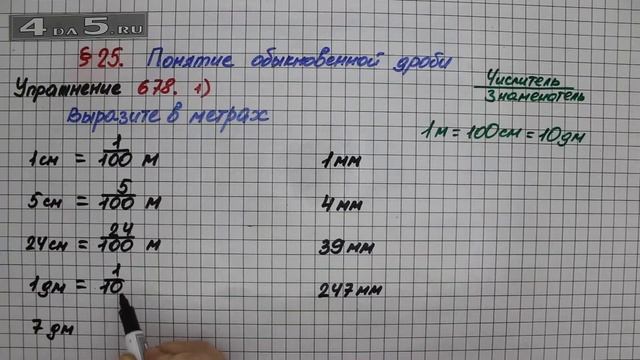 4DA5.RU
§ 25. Понятие обыкновенной дроби
Упражнение 678. 1)
Числитель
Знаменатель
Выразите в метрах
1 м = 100 см = 10 дм
1 см = 1/100 м
5 см = 5/100 м
24 см = 24/100 м
1 дм = 1/10
7 дм
1 мм
4 мм
39 мм
247 мм